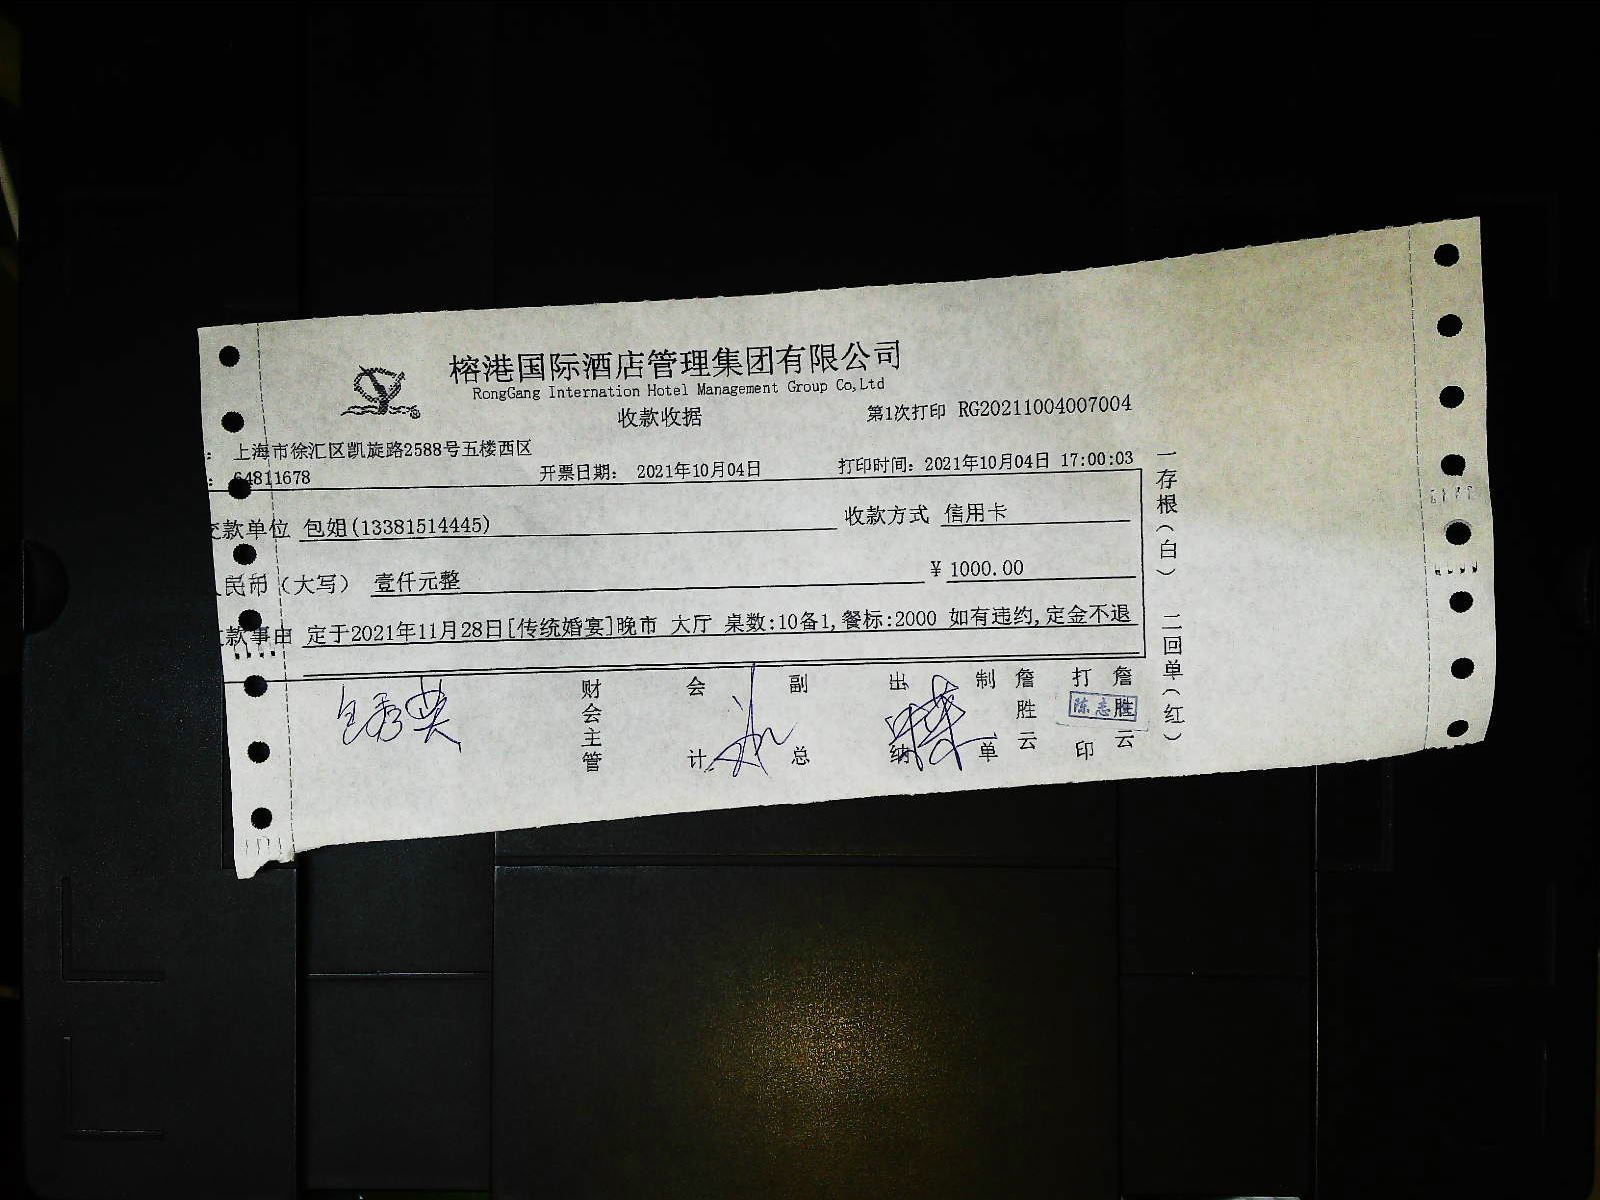 榕港国际酒店管理集团有限公司
RongGang Internation Hotel Management Group Co,Ltd
收款收据
第1次打印 RG20211004007004
: 上海市徐汇区凯旋路2588号五楼西区
: 64811678 开票日期: 2021年10月04日 打印时间: 2021年10月04日 17:00:03
交款单位 包姐(13381514445) 收款方式 信用卡
人民币（大写） 壹仟元整 ¥ 1000.00
款事由 定于2021年11月28日[传统婚宴]晚市 大厅 桌数:10备1,餐标:2000 如有违约,定金不退
财会主管 会计 副总 出纳 制单 詹胜云 打印 詹胜云
陈志胜
一存根(白) 二回单(红)